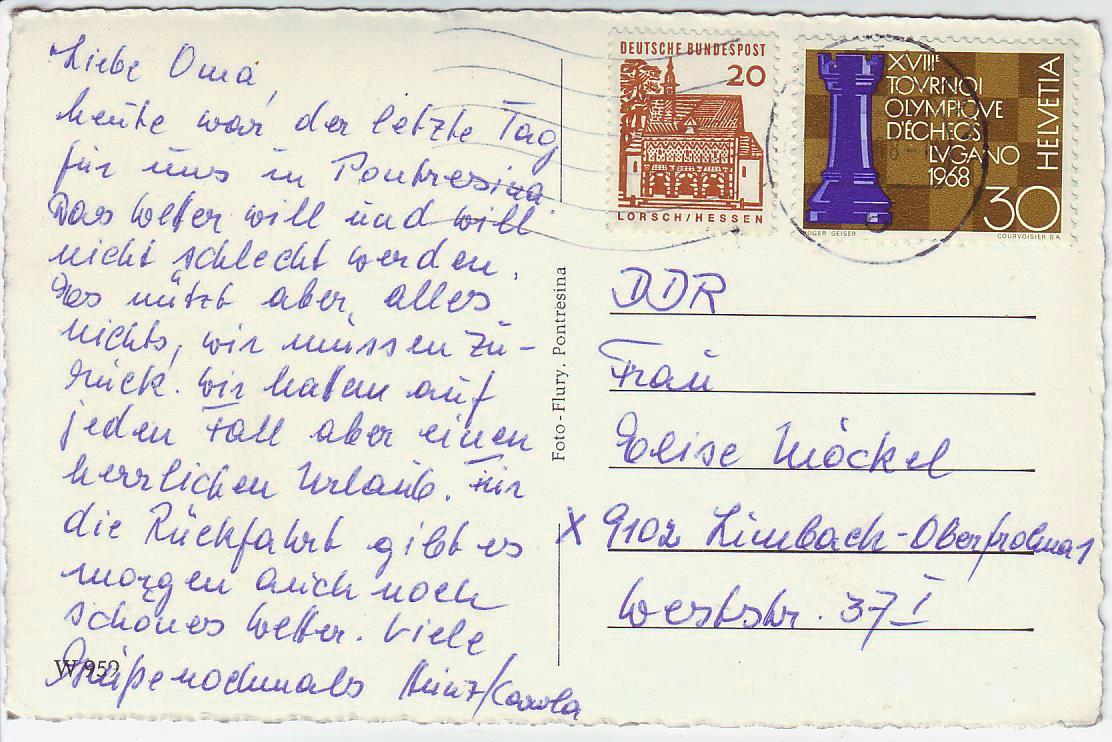 Liebe Oma,
heute war der letzte Tag
für uns in Pontresina.
Das Wetter will und will
nicht schlecht werden.
Das nützt aber alles
nichts, wir müssen zu-
rück. Wir haben auf
jeden Fall aber einen
herrlichen Urlaub. Für
die Rückfahrt gibt es
morgen auch noch
schönes Wetter. Viele
Grüße nochmals Heinz/Carola
W 959
Foto-Flury, Pontresina
DEUTSCHE BUNDESPOST
20
LORSCH/HESSEN
XVIIIE
TOVRNOI
OLYMPIQVE
D'ÉCHECS
LVGANO
1968
HELVETIA
30
ROGER GEISER
COURVOISIER S.A.
DDR
Frau
Elise Möckel
X 9102 Limbach-Oberfrohna 1
Weststr. 37 I